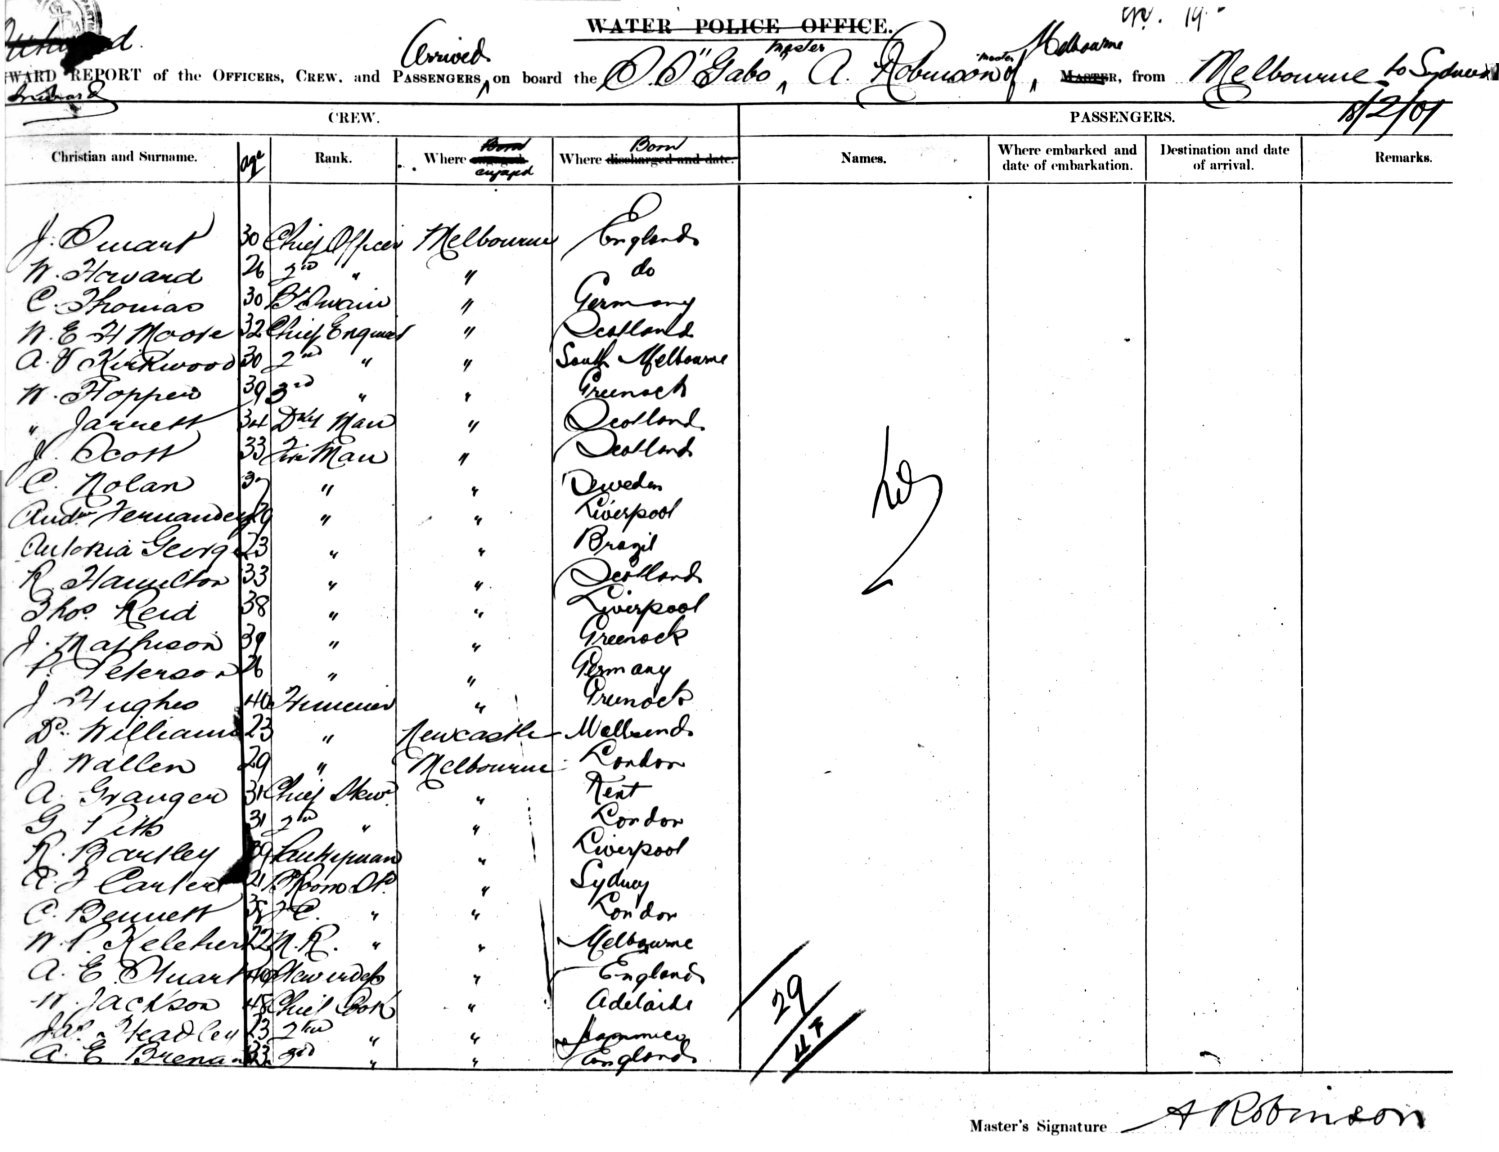 WATER POLICE OFFICE.
Arrived master master Melbourne
WARD REPORT of the OFFICERS, CREW, and PASSENGERS, on board the S.S "Gabo" A. Robinson of MASTER, from Melbourne to Sydney
18/2/01
CREW. PASSENGERS.
Christian and Surname. age Rank. Where Born engaged Where Born discharged and date. Names. Where embarked and date of embarkation. Destination and date of arrival. Remarks.
J. Smart 30 Chief Officer Melbourne England
W. Howard 26 2nd " " do
C. Thomas 30 Bt Swain " Germany
W. E. H Moore 32 Chief Engineer " Scotland
A. Kirkwood 30 2nd " " South Melbourne
W. Hopper 39 3rd " " Greenock
" Jarrett 34 Dky Man " Scotland
J. Scott 33 Fire Man " Scotland
C. Nolan " " Sweden
Andw Fernandez 29 " " Liverpool
Antonia George 23 " " Brazil
R Hamilton 33 " " Scotland
Thos. Reid 38 " " Liverpool
J. Mathison 39 " " Greenock
P. Peterson 26 " " Germany
J Hughes 40 Trimmer " Greenock
Dd. Williams 23 " Newcastle Wallsend
J Wallen 29 " Melbourne London
A. Granger 31 Chief Stew. " Kent
G. Pitt 31 2nd " " London
R. Bartley 39 Pantryman " Liverpool
Carter 21 B Room St. " Sydney
C. Bennett F.C. " " London
W. P. Keleher 22 M. R. " " Melbourne
A. E. Stuart 40 Stewerdess " England
W. Jackson 48 Chief Cook " Adelaide
Jas. Headley 23 2nd " " Jammica
A. E. Brenan 33 3rd " " England
Nil
29
Master's Signature A Robinson